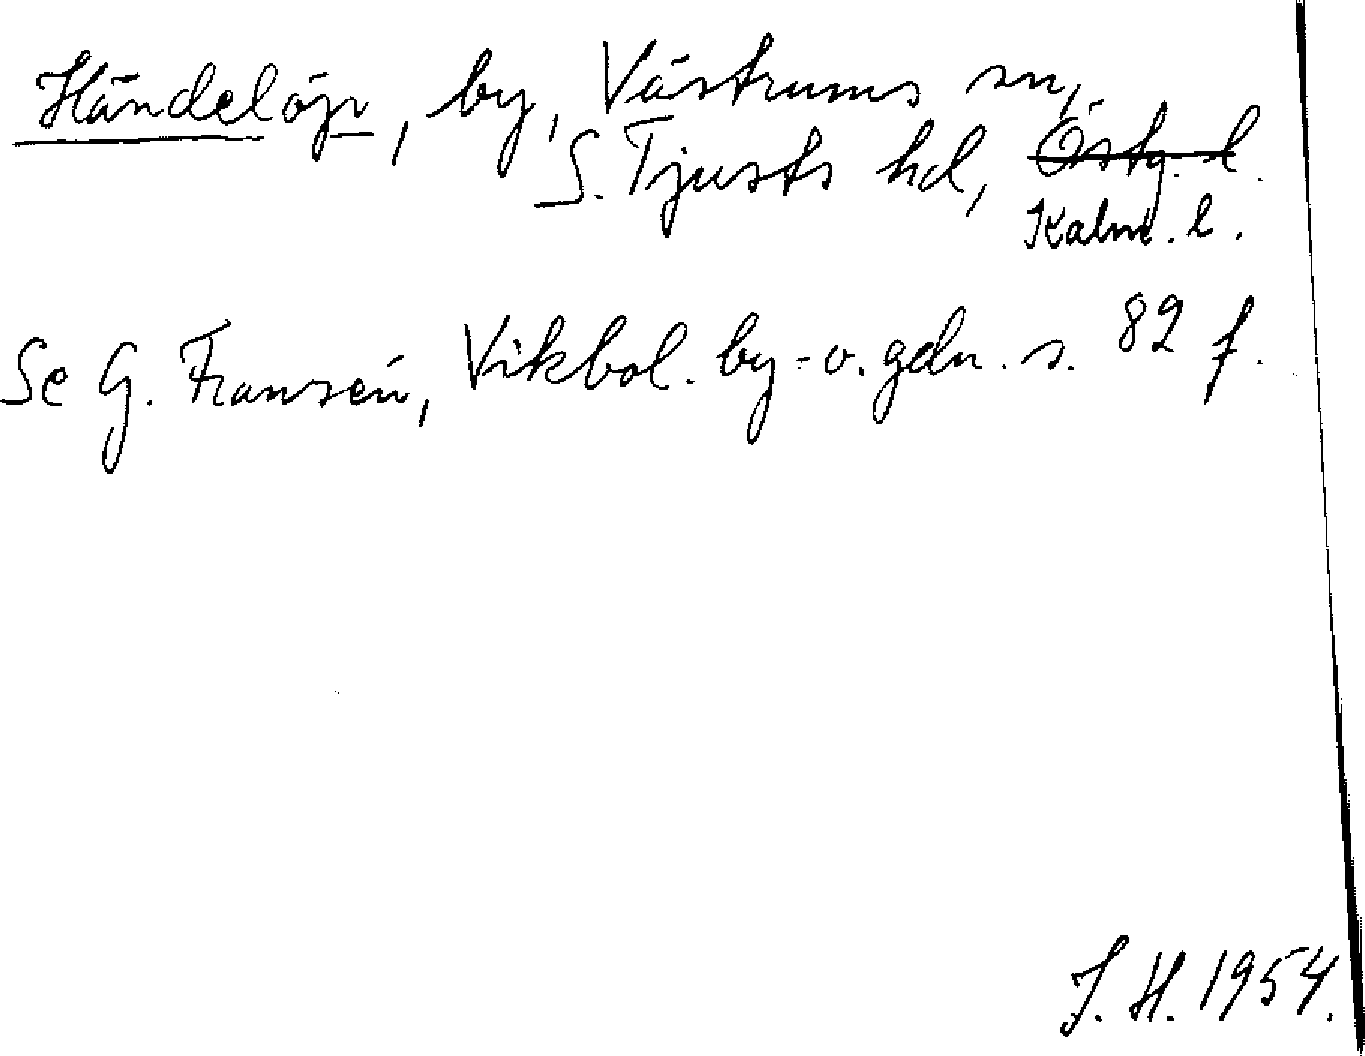 Händelöp, by, Västrums sn,
S. Tjusts hd, Östg. l.
Kalm. l.
Se G. Fransén, Vikbol. by- o. gdn. s. 82 f.
J. H. 1954.